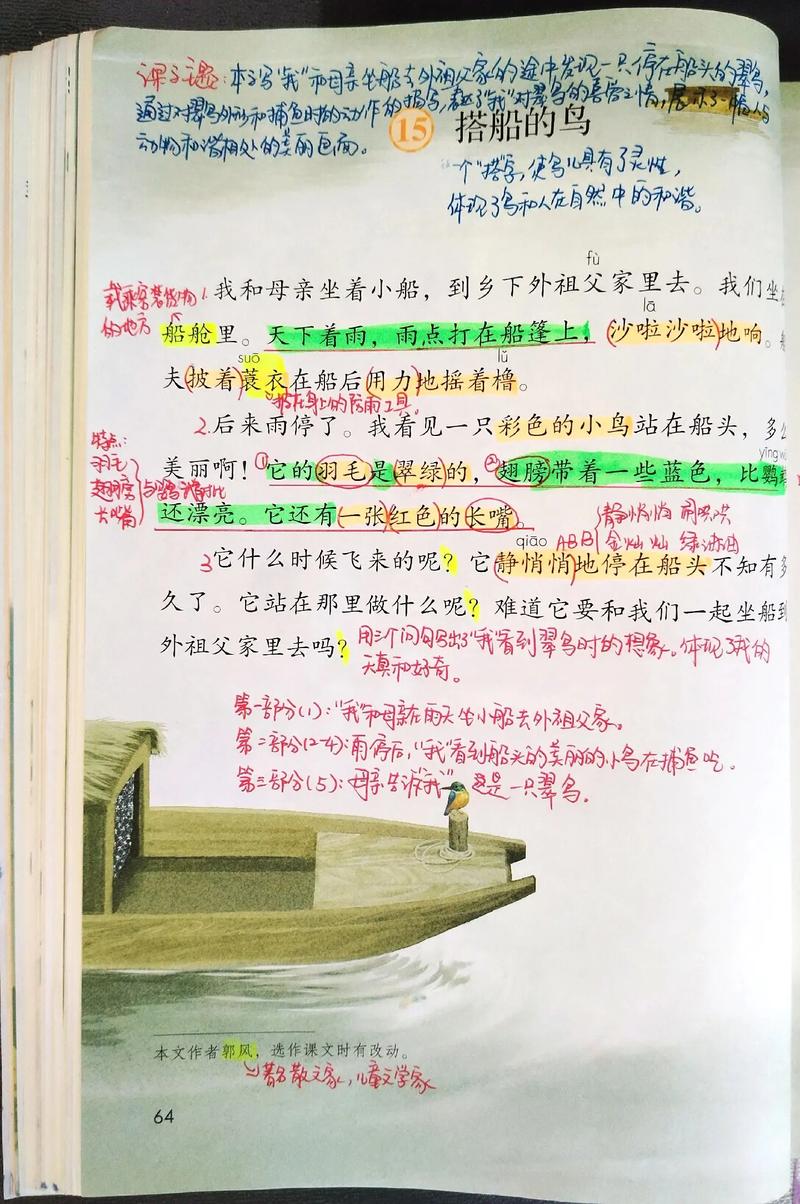 课文主题：本文写“我”和母亲坐船去外祖父家的途中发现一只停在船头的翠鸟，
通过对翠鸟外形和捕鱼时的动作的描写，表达了“我”对翠鸟的喜爱之情，展示了一幅人与
动物和谐相处的美丽画面。
15 搭船的鸟
一个“搭”字，使鸟儿具有了灵性，
体现了鸟和人在自然中的和谐。
fù
1.我和母亲坐着小船，到乡下外祖父家里去。我们坐在
载乘客装货物
的地方
lā
船舱里。天下着雨，雨点打在船篷上，沙啦沙啦地响。
suō lǔ
夫披着蓑衣在船后用力地摇着橹。
披在身上的防雨工具
2.后来雨停了。我看见一只彩色的小鸟站在船头，多么
特点：
羽毛
翅膀
长嘴
与鹦鹉对比
yīng wǔ
美丽啊！①它的羽毛是翠绿的，②翅膀带着一些蓝色，比鹦
还漂亮。它还有一张红色的长嘴。
静悄悄 闹哄哄
ABB 金灿灿 绿油油
qiāo
3它什么时候飞来的呢？它静悄悄地停在船头不知有多
久了。它站在那里做什么呢？难道它要和我们一起坐船到
外祖父家里去吗？
用三个问句写出了“我”看到翠鸟时的想象。体现了我的
天真和好奇。
第一部分(1)：“我”和母亲在雨天坐小船去外祖父家。
第二部分(2-4)：雨停后，“我”看到船头的美丽的小鸟在捕鱼吃。
第三部分(5)：母亲告诉“我”这是一只翠鸟。
本文作者郭风，选作课文时有改动。
著名散文家，儿童文学家
64